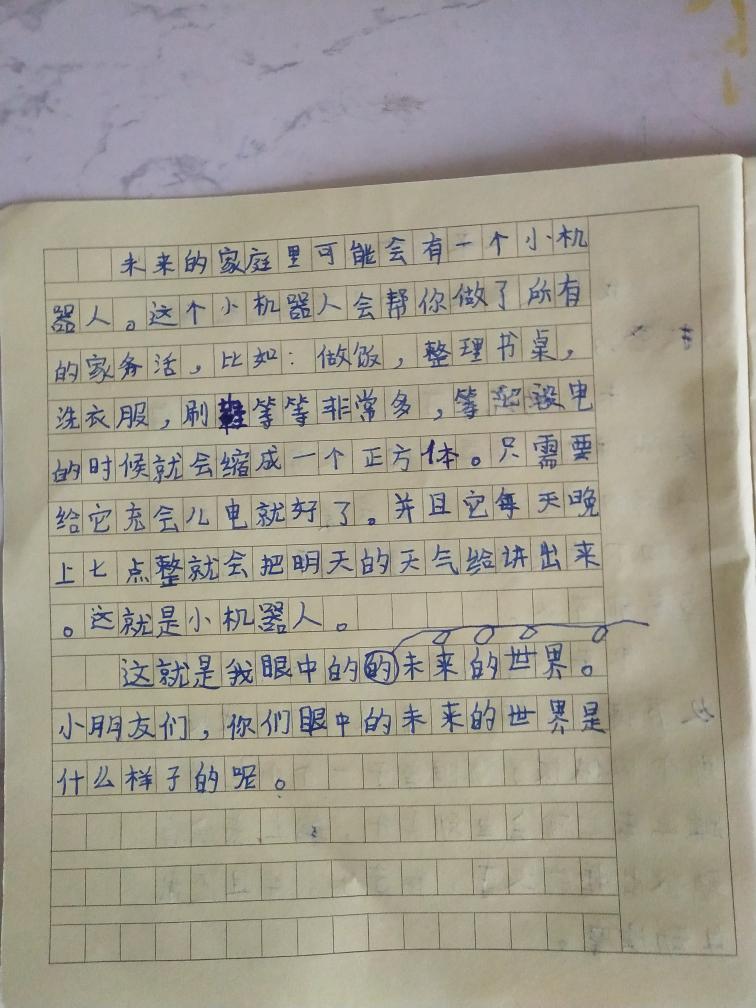 未来的家庭里可能会有一个小机
器人。这个小机器人会帮你做了所有
的家务活，比如：做饭，整理书桌，
洗衣服，刷鞋等等非常多，等它没电
的时候就会缩成一个正方体。只需要
给它充会儿电就好了。并且它每天晚
上七点整就会把明天的天气给讲出来
。这就是小机器人。
这就是我眼中的的未来的世界。
小朋友们，你们眼中的未来的世界是
什么样子的呢。